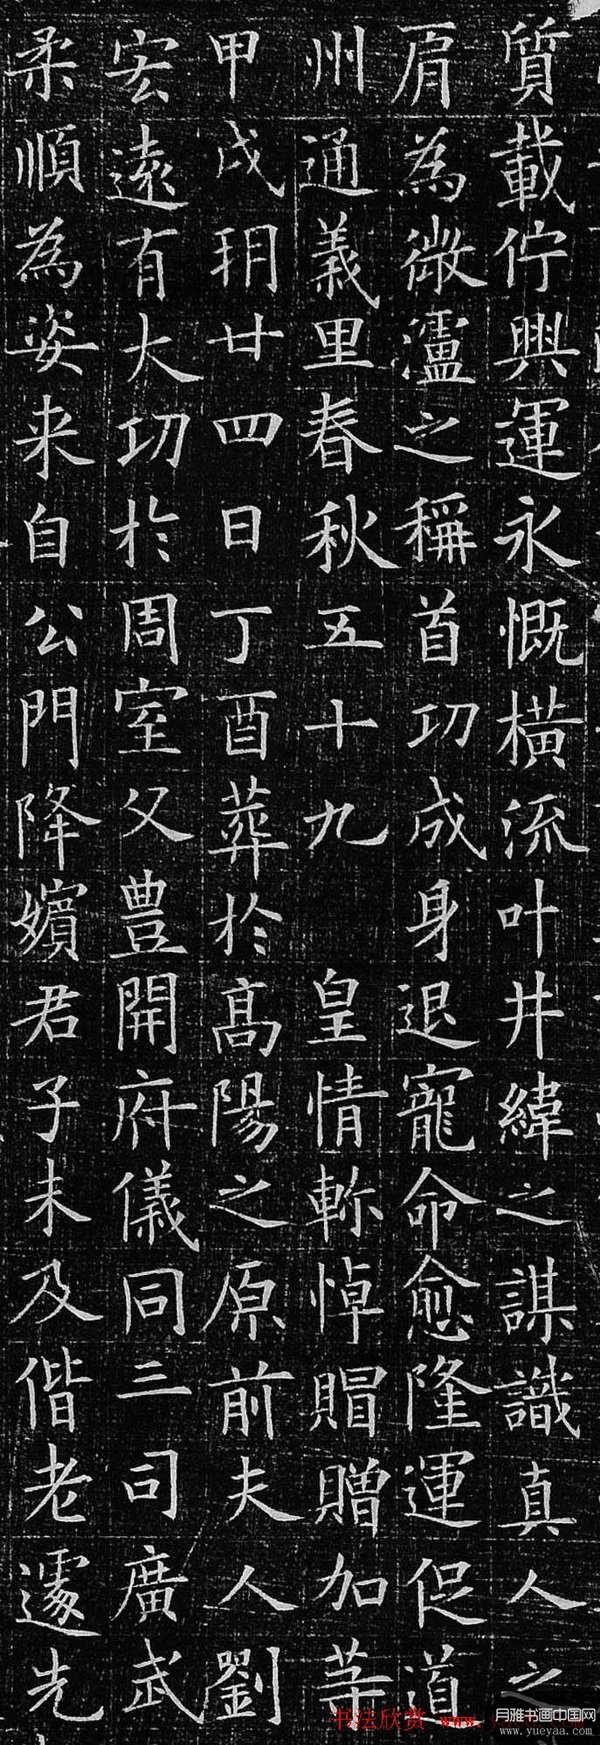 質載佇興運永慨橫流叶井緯之謀識真人之
屑為微瀘之稱首功成身退寵命愈隆運促道
州通義里春秋五十九　皇情軫悼賵贈加等
甲戌朔廿四日丁酉葬於髙陽之原前夫人劉
宏遠有大功於周室父豊開府儀同三司廣武
柔順為姿来自公門降嬪君子未及偕老遽先
书法欣赏 www.
月雅书画中国网
www.yueyaa.com